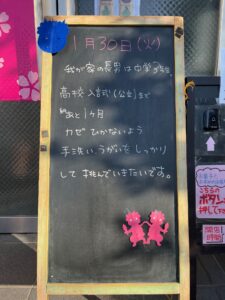 1月30日(火)
我が家の長男は中学3年生
高校入試(公立)まで
あと1ヶ月
カゼひかないよう
手洗い、うがいをしっかり
して挑んでいきたいです。
こちらの
ボタンを
押して下さい